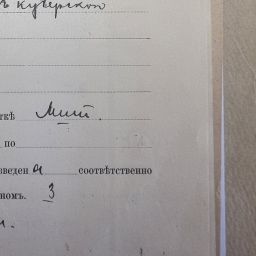 ъ куверской
ткѣ Мит.
по
зведена соотвѣтственно
номъ. 3